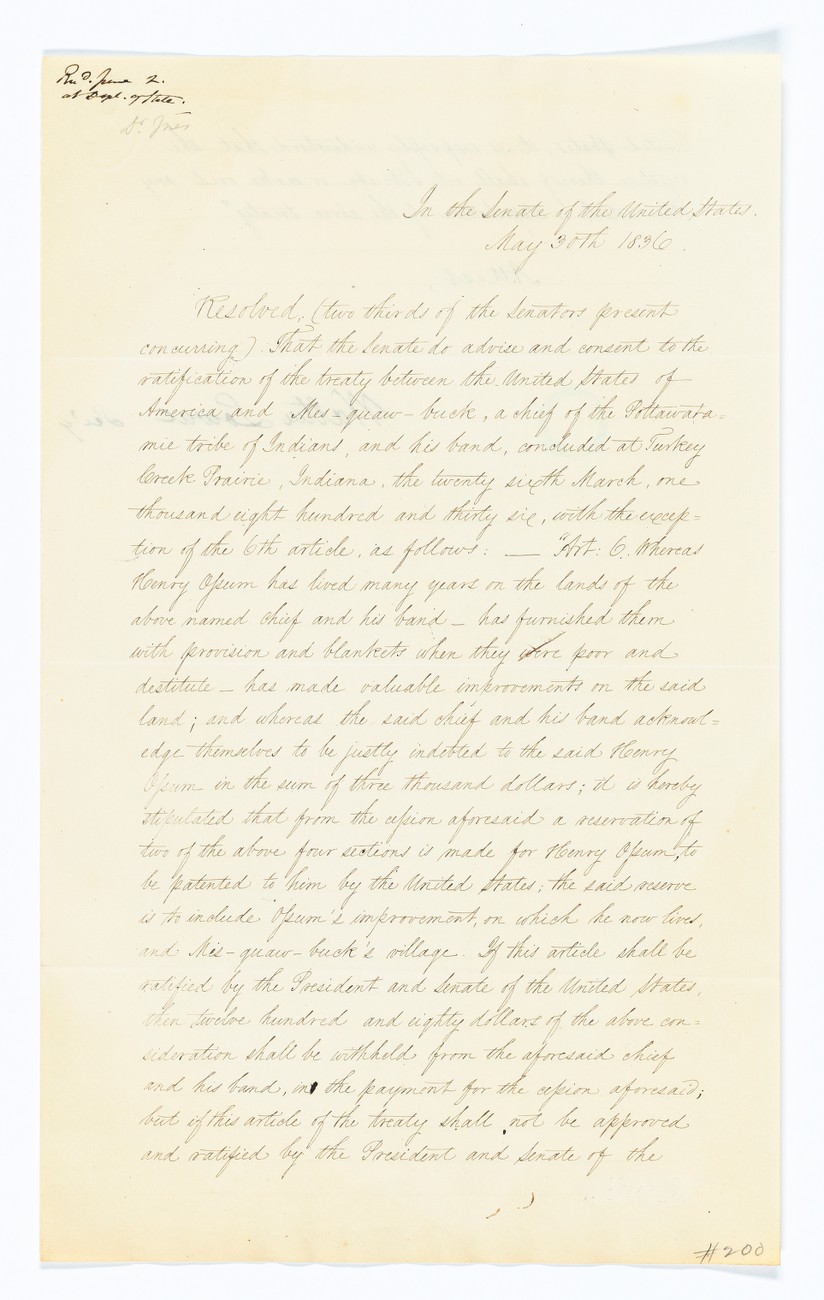 Recd. June 2.
at Dept. of State.
In the Senate of the United States.
May 30th 1836.
Resolved, (two thirds of the Senators present
concurring) That the Senate do advise and consent to the
ratification of the treaty between the United States of
America and Mes-quaw-buck, a chief of the Pottawata-
mie tribe of Indians, and his band, concluded at Turkey
Creek Prairie, Indiana, the twenty sixth March, one
thousand eight hundred and thirty six, with the excep-
tion of the 6th article, as follows: — "Art: 6. Whereas
Henry Ossum has lived many years on the lands of the
above named chief and his band – has furnished them
with provision and blankets when they were poor and
destitute – has made valuable improvements on the said
land; and whereas the said chief and his band acknowl-
edge themselves to be justly indebted to the said Henry
Ossum in the sum of three thousand dollars; it is hereby
stipulated that from the cession aforesaid a reservation of
two of the above four sections is made for Henry Ossum, to
be patented to him by the United States; the said reserve
is to include Ossum's improvement, on which he now lives,
and Mes-quaw-buck's village. If this article shall be
ratified by the President and Senate of the United States,
then twelve hundred and eighty dollars of the above con-
sideration shall be withheld from the aforesaid chief
and his band, in the payment for the cession aforesaid;
but if this article of the treaty shall not be approved
and ratified by the President and Senate of the
#200